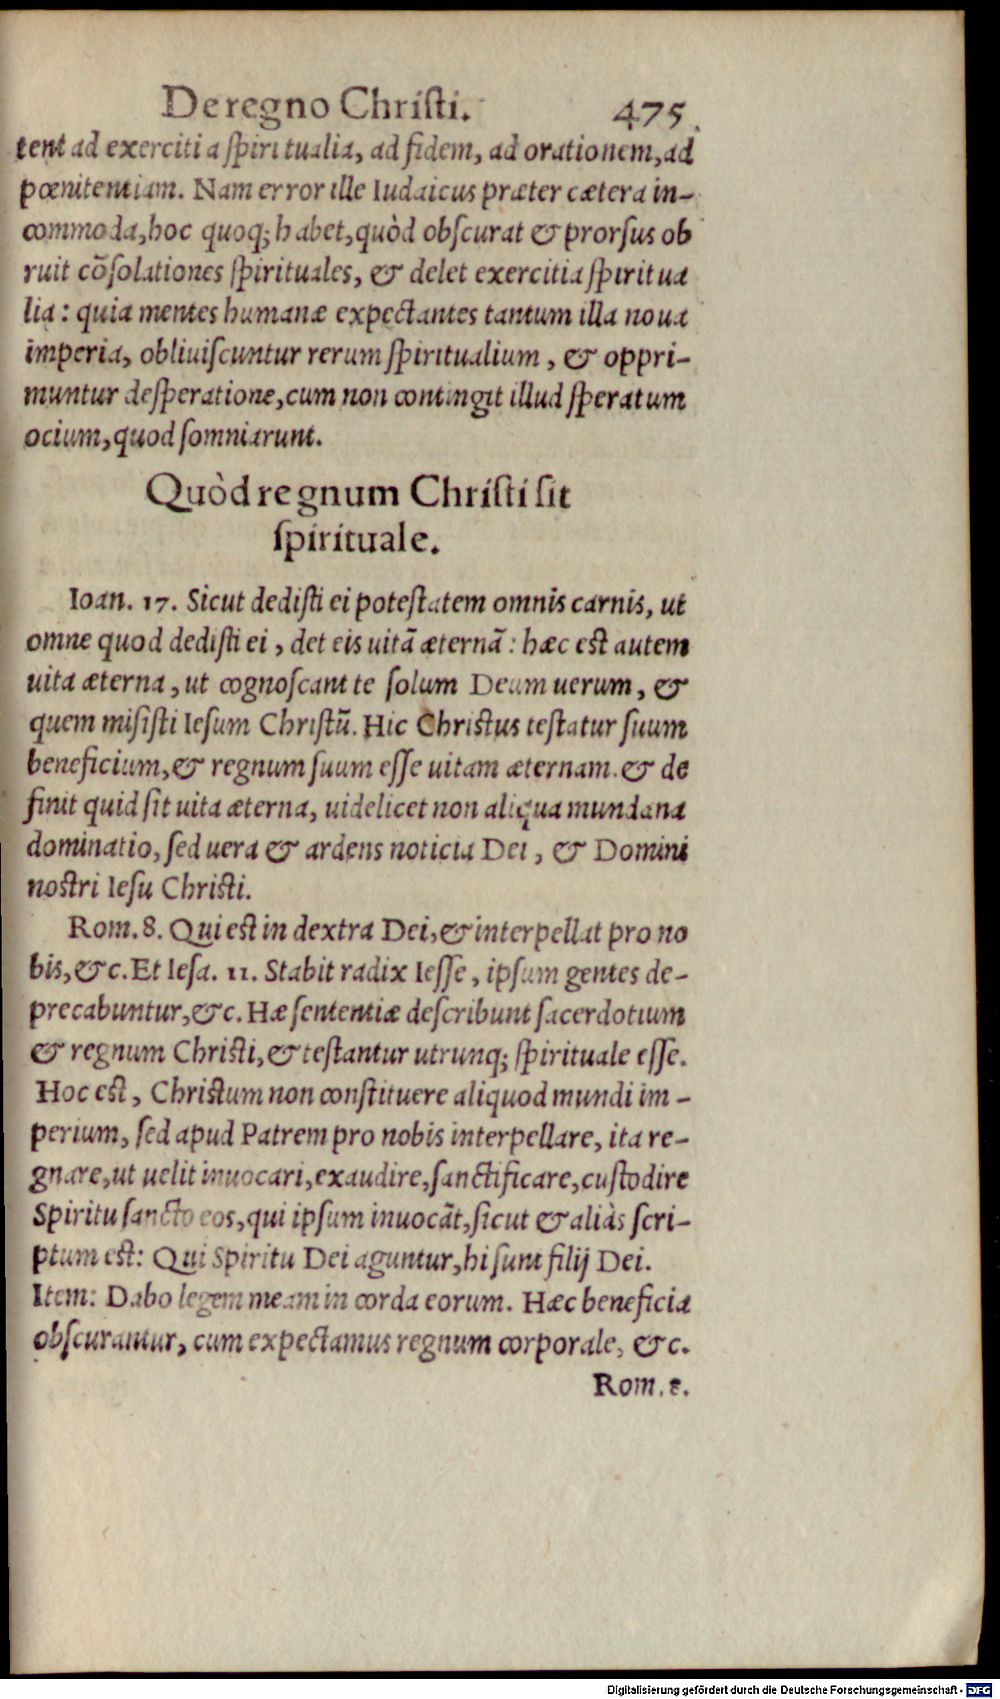 De regno Christi. 475
tent ad exercitia spiritualia, ad fidem, ad orationem, ad
pœnitentiam. Nam error ille Iudaicus præter cætera in-
commoda, hoc quoq; habet, quòd obscurat & prorsus ob
ruit cōsolationes spirituales, & delet exercitia spiritua
lia: quia mentes humanæ expectantes tantum illa noua
imperia, obliuiscuntur rerum spiritualium, & oppri-
muntur desperatione, cum non contingit illud speratum
ocium, quod somniarunt.
Quòd regnum Christi sit
spirituale.
Ioan. 17. Sicut dedisti ei potestatem omnis carnis, ut
omne quod dedisti ei, det eis uitā æternā: hæc est autem
uita æterna, ut cognoscant te solum Deum uerum, &
quem misisti Iesum Christū. Hic Christus testatur suum
beneficium, & regnum suum esse uitam æternam. & de
finit quid sit uita æterna, uidelicet non aliqua mundana
dominatio, sed uera & ardens noticia Dei, & Domini
nostri Iesu Christi.
Rom. 8. Qui est in dextra Dei, & interpellat pro no
bis, &c. Et Iesa. 11. Stabit radix Iesse, ipsum gentes de-
precabuntur, &c. Hæ sententiæ describunt sacerdotium
& regnum Christi, & testantur utrunq; spirituale esse.
Hoc est, Christum non constituere aliquod mundi im-
perium, sed apud Patrem pro nobis interpellare, ita re-
gnare, ut uelit inuocari, exaudire, sanctificare, custodire
Spiritu sancto eos, qui ipsum inuocāt, sicut & aliàs scri-
ptum est: Qui Spiritu Dei aguntur, hi sunt filij Dei.
Item: Dabo legem meam in corda eorum. Hæc beneficia
obscurantur, cum expectamus regnum corporale, &c.
Rom. 8.
Digitalisierung gefördert durch die Deutsche Forschungsgemeinschaft - DFG